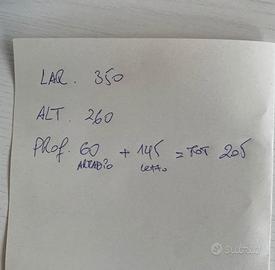 LAR. 350
ALT. 260
PROF. 60 + 145 = TOT 205
ARMADIO LETTO
subito